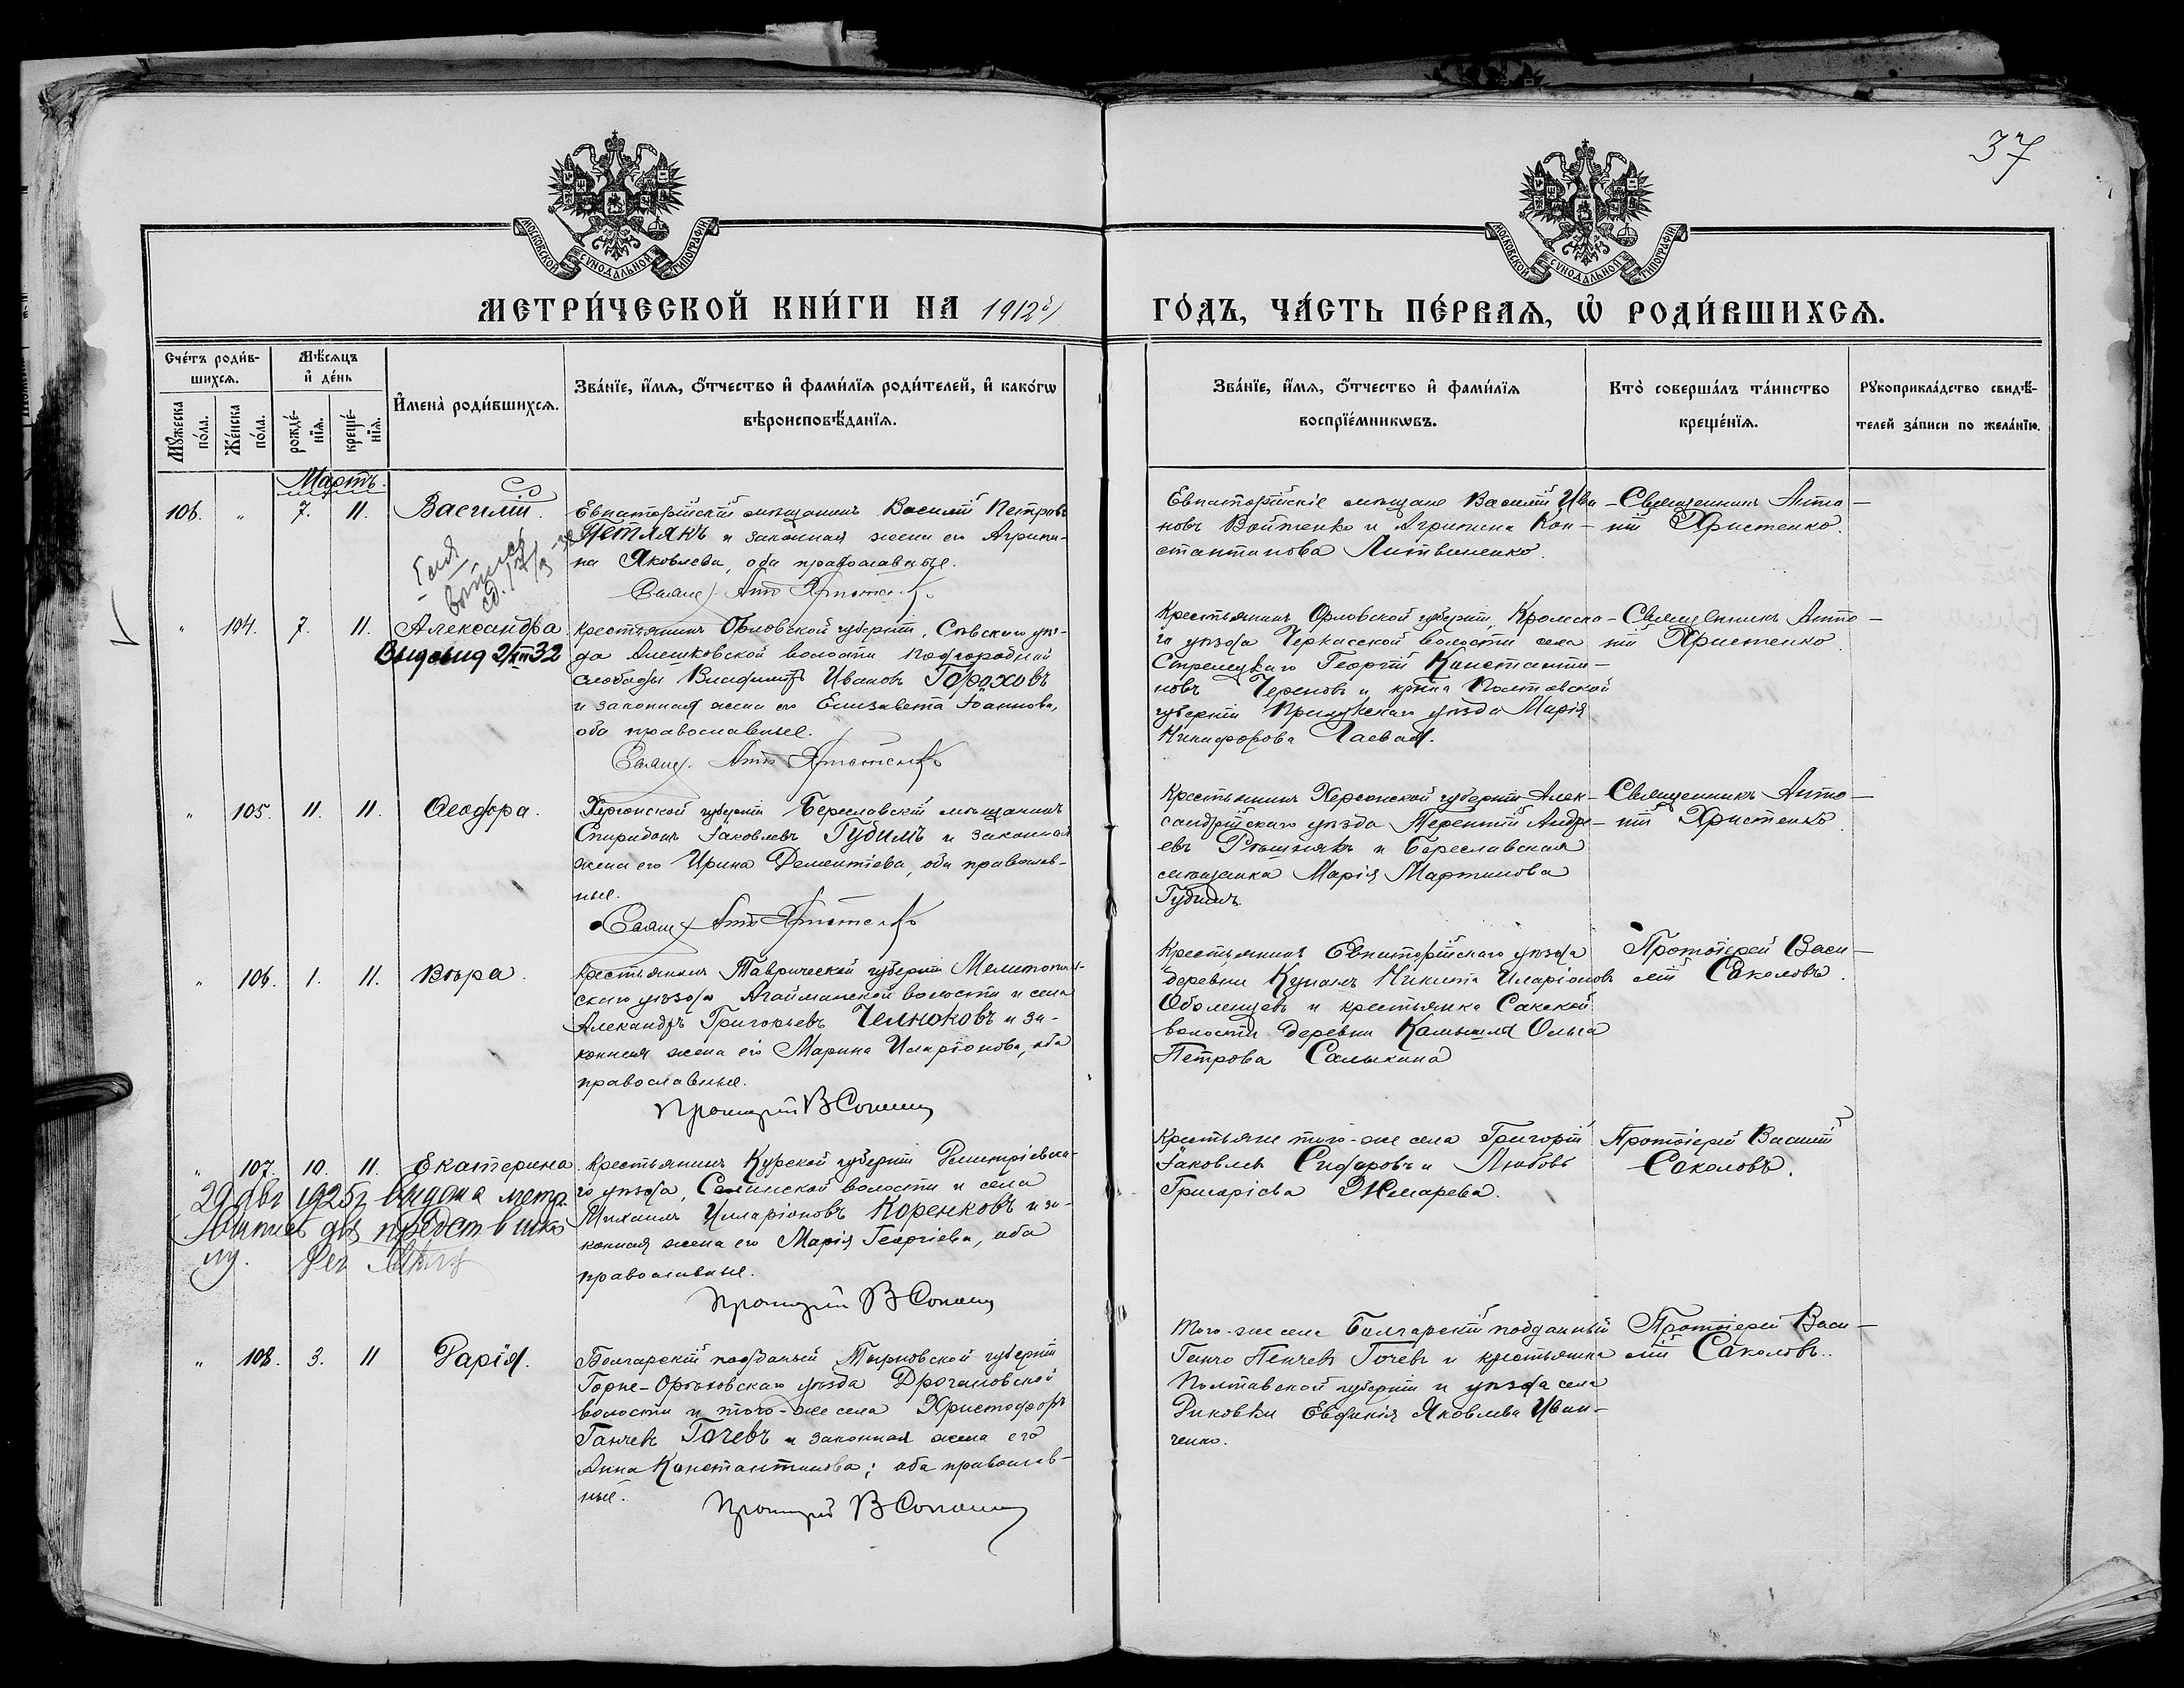 37
МОСКОВСКОЙ СУНОДАЛЬНОЙ ТИПОГРАФІИ
МОСКОВСКОЙ СУНОДАЛЬНОЙ ТИПОГРАФІИ
МЕТРИ́ЧЕСКОЙ КНИ́ГИ НА 1912й
ГО́ДЪ, ЧА́СТЬ ПЕ́РВАЯ, Ѡ РОДИ́ВШИХСЯ.
Сче́тъ роди́в-
шихся.
Мѣ́сяцъ
и҆ де́нь
Му́жеска по́ла.
Же́нска по́ла.
рожде́-
нїя.
креще́-
нїя.
И҆мена̀ роди́вшихся.
Зва́нїе, и҆́мя, ѻ҆́тчество и҆ фами́лїя роди́телей, и҆ како́гѡ
вѣроисповѣ́данїя.
Зва́нїе, и҆́мя, ѻ҆́тчество и҆ фами́лїя
воспрїе́мникѡвъ.
Кто̀ соверша́лъ та́инство
креще́нїя.
Рꙋкоприкла́дство свидѣ́-
телей за́писи по жела́нїю.
Мартъ.
106. " 7. 11. Василій.
Евпаторійскій мѣщанинъ Василій Петровъ
Петлякъ и законная жена его Агрипи-
на Яковлева, оба православные.
Евпаторійскіе мѣщане Василій Ива-
новъ Войтенко и Агрипина Кон-
стантинова Литвиненко.
Священникъ Анто-
ній Христенко.
" 104. 7. 11. Александра
Выдана 2/XII 32
Крестьянинъ Орловской губерніи, Сѣвскаго уѣз-
да Алешковской волости Подгородней
слободы Владиміръ Ивановъ Гороховъ
и законная жена его Елизавета Іоаннова,
оба православные.
Крестьянинъ Орловской губерніи, Кромска-
го уѣзда Черкасской волости села
Стрелецкаго Георгій Константи-
новъ Череповъ и кр-ка Полтавской
губерніи Прилукскаго уѣзда Марія
Никифорова Гаевая.
Священникъ Анто-
ній Христенко.
" 105. 11. 11. Ѳеодора.
Херсонской губерніи Бериславскій мѣщанинъ
Спиридонъ Іаковлевъ Губимъ и законная
жена его Ирина Дементіева, оба православ-
ные.
Крестьянинъ Херсонской губерніи Алек-
сандрійскаго уѣзда Терентій Андре-
евъ и Береславская
мѣщанка Марія Мартинова
Священникъ Анто-
ній Христенко.
" 106. 1. 11. Вѣра.
Крестьянинъ Таврической губерніи Мелитополь-
скаго уѣзда Агайманской волости и села
Александръ Григорьевъ Челноковъ и за-
конная жена его Марина Иларіонова, оба
православные.
Крестьянинъ Евпаторійскаго уѣзда
деревни Никита Иларіоновъ
Оболенцевъ и крестьянка Сакской
волости деревни Камышлы Ольга
Петрова Салыкина
Протоіерей Васи-
лій Соколовъ.
" 107. 10. 11. Екатерина
Крестьянинъ Курской губерніи Димитріевска-
го уѣзда, Селинской волости и села
Михаилъ Илларіоновъ Коренковъ и за-
конная жена его Марія Георгіева, оба
православные.
1925г выдана метр.
Крестьяне того-же села Григорій
Іаковлевъ Сидоровъ и Любовь
Григоріева Жмарева.
Протоіерей Василій
Соколовъ.
" 108. 3. 11 Дарія.
Болгарскій подданый Тырновской губерніи
Горне-Орѣховскаго уѣзда Драгановской
волости и того-же села Христофоръ
Ганчевъ Гочевъ и законная жена его
Анна Константинова; оба православ-
ные.
Того-же села Болгарскій подданный
Генчо Пенчевъ Гочевъ и крестьянка
Полтавской губерніи и уѣзда села
Диковки Евдокія Яковлева Иван-
ченко.
Протоіерей Васи-
лій Соколовъ.